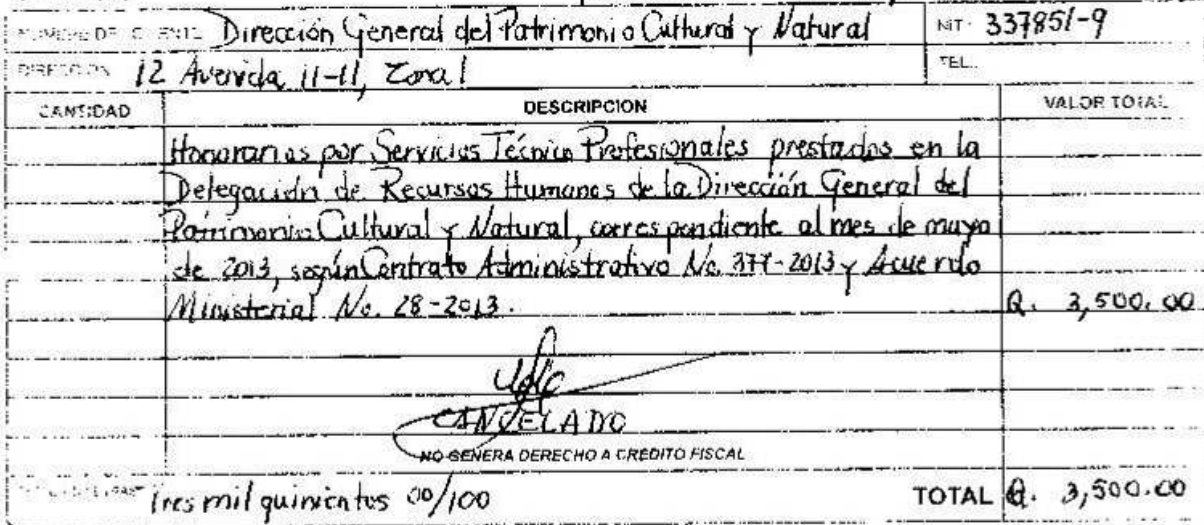 NOMBRE DEL CLIENTE: Dirección General del Patrimonio Cultural y Natural NIT: 337851-9
DIRECCION: 12 Avenida 11-11, Zona 1 TEL.:
CANTIDAD DESCRIPCION VALOR TOTAL
Honorarios por Servicios Técnico Profesionales prestados en la
Delegación de Recursos Humanos de la Dirección General del
Patrimonio Cultural y Natural, correspondiente al mes de mayo
de 2013, según Contrato Administrativo No. 377-2013 y Acuerdo
Ministerial No. 28-2013. Q. 3,500.00
CANCELADO
NO GENERA DERECHO A CREDITO FISCAL
Tres mil quinientos 00/100 TOTAL Q. 3,500.00